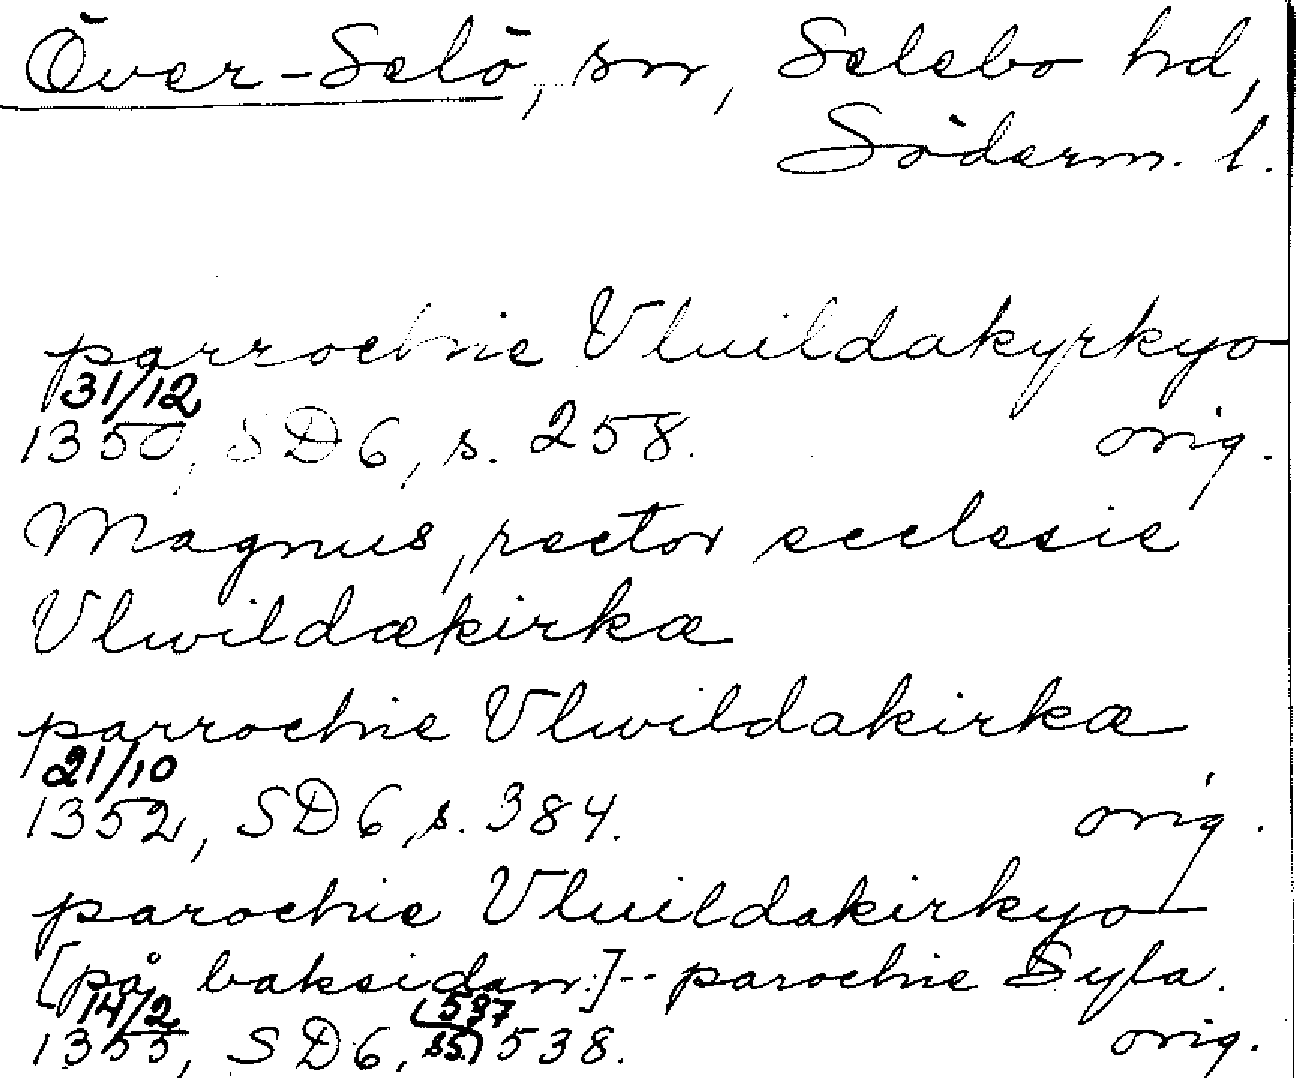 Över-Selö, sn, Selebo hd,
Söderm. l.
parrochie Vluildakyrkyo
31/12
1350, SD 6, s. 258. orig.
Magnus, rector ecclesie
Vlwildækirkæ
parrochie Vlwildakirkæ
21/10
1352, SD 6, s. 384. orig.
parochie Vluildakirkyo
[på baksidan:]-- parochie Syla.
14/2 (537
1355, SD 6, s.) 538. orig.